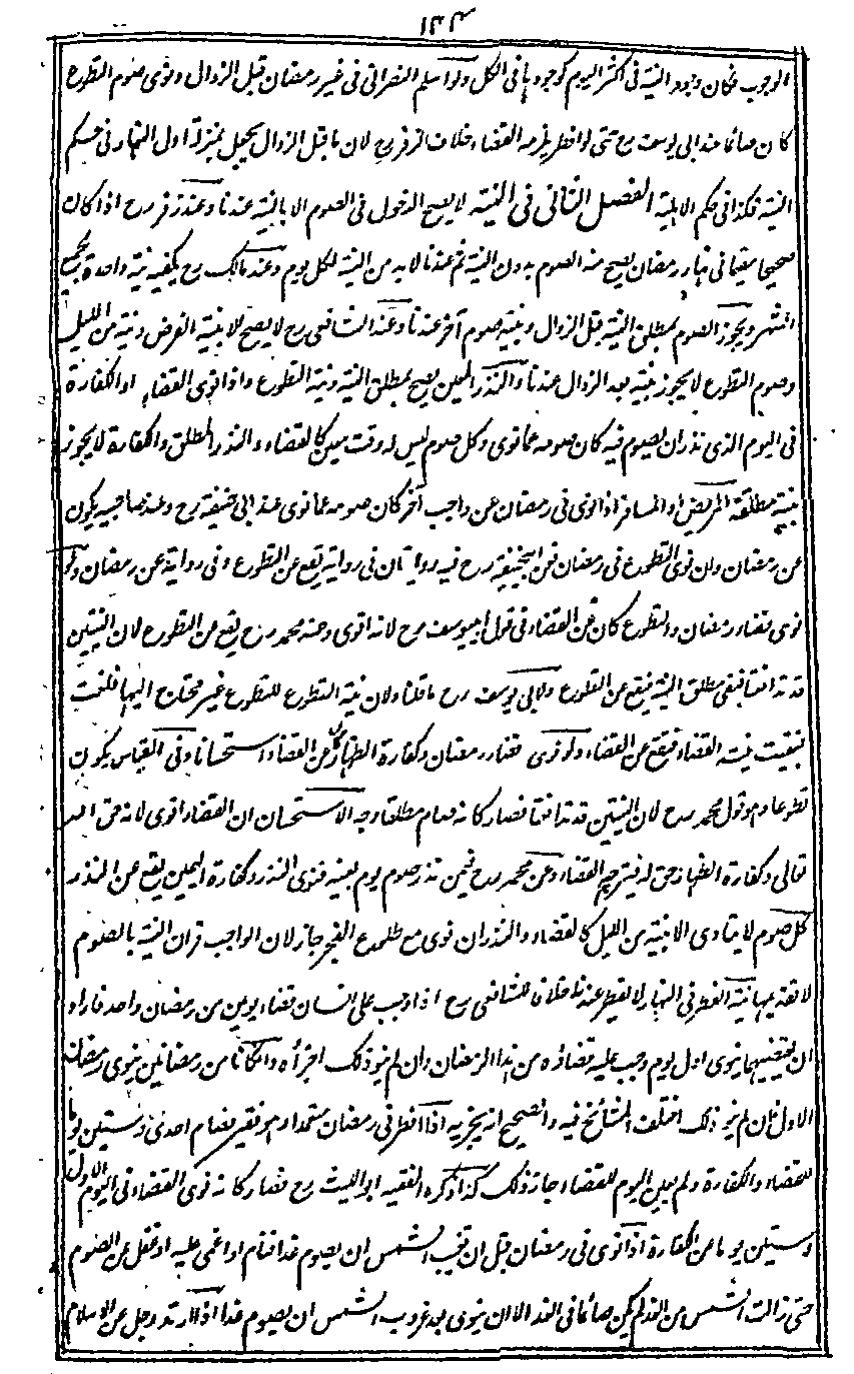 ۱۲۴
الوجوب فكان وجود النية فى اكثر اليوم كوجودها فى الكل ولو اسلم النصرانى فى غير رمضان قبل الزوال ونوى صوم التطوع
كان صائما عند ابى يوسف رح حتى لو افطر يلزمه القضاء خلافا لزفر رح لان ما قبل الزوال يجعل بمنزلة اول النهار فى حكم
النية فكذا فى حكم الاهلية الفصل الثانى فى النية لا يصح الدخول فى الصوم الا بالنية عندنا وعند زفر رح اذا كان
صحيحا مقيما فى نهار رمضان يصح منه الصوم بدون النية ثم عندنا لابد من النية لكل يوم وعند مالك رح يكفيه نية واحدة لجميع
الشهر ويجوز الصوم بمطلق النية قبل الزوال وبنية صوم آخر عندنا وعند الشافعى رح لا يصح الا بنية الفرض ونية من الليل
وصوم التطوع لا يجوز بنية بعد الزوال عندنا والنذر المعين يصح بمطلق النية ونية التطوع واذا نوى القضاء او الكفارة
فى اليوم الذى نذر ان يصوم فيه كان صومه عما نوى وكل صوم ليس له وقت معين كالقضاء والنذر المطلق والكفارة لا يجوز
بنية مطلقة المريض او المسافر اذا نوى فى رمضان عن واجب آخر كان صومه عما نوى عند ابى حنيفة رح وعند صاحبيه يكون
عن رمضان وان نوى التطوع فى رمضان فعن ابيحنيفة رح فيه روايتان فى رواية يقع عن التطوع وفى رواية عن رمضان ولو
نوى قضاء رمضان والتطوع كان عن القضاء فى قول ابيوسف رح لانه اقوى وعند محمد رح يقع عن التطوع لان النيتين
قد تدافعتا فبقى مطلق النية فيقع عن التطوع ولابى يوسف رح ما قلنا ولان نية التطوع للتطوع غير محتاج اليها فلغت
فبقيت نية القضاء فيقع عن القضاء ولو نوى قضاء رمضان وكفارة الظهار كان عن القضاء استحسانا وفى القياس يكون
تطوعا وهو قول محمد رح لان النيتين قد تدافعتا فصار كانه صام مطلقا وجه الاستحسان ان القضاء اقوى لانه حق الله
تعالى وكفارة الظهار حق له فيترجح القضاء وعن محمد رح فيمن نذر صوم يوم بعينه فنوى النذر وكفارة اليمين يقع عن النذر
كل صوم لا يتادى الا بنية من الليل كالقضاء والنذر ان نوى مع طلوع الفجر جاز لان الواجب قران النية بالصوم
لا تقديمها نية الفطر فى النهار لا يفطر عندنا خلافا للشافعى رح اذا وجب على انسان قضاء يومين من رمضان واحد فاراد
ان يقضيهما ينوى اول يوم وجب عليه قضاؤه من هذا الرمضان وان لم ينو ذلك اجزأه وان كانا من رمضانين ينوى رمضان
الاول فان لم ينو ذلك اختلف المشائخ فيه والصحيح انه يجزيه اذا افطر فى رمضان متعمدا وهو فقير فصام احدى وستين يوما
للقضاء والكفارة ولم يعين اليوم للقضاء جاز ذلك كذا ذكره الفقيه ابو الليث رح فصار كانه نوى القضاء فى اليوم الاول
وستين يوما من الكفارة اذا نوى فى رمضان قبل ان تغيب الشمس ان يصوم غدا فنام او اغمى عليه او غفل عن الصوم
حتى زالت الشمس من الغد لم يكن صائما فى الغد الا ان ينوى بعد غروب الشمس ان يصوم غدا اذا ارتد رجل عن الاسلام